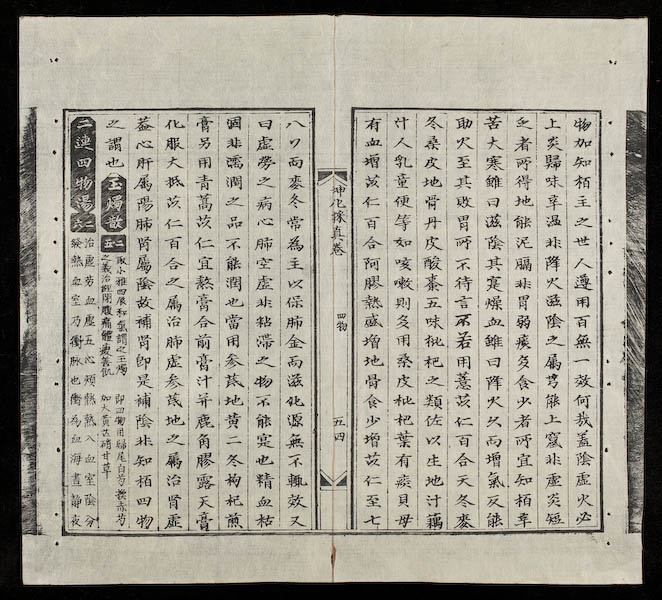 物加知栢主之世人遵用百無一效何哉蓋陰虛火必
上炎歸味辛温非降火滋陰之属芎能上竄非虛炎短
乏者所得地能泥膈非胃弱痰多食少者所宜知栢辛
苦大寒雖曰滋陰其寔燥血雖曰降火久而增氣反能
助火至其敗胃所不待言不若用薏苡仁百合天冬麥
冬桑皮地骨丹皮酸棗五味枇杷之類佐以生地汁藕
汁人乳童便等如咳嗽則多用桑皮枇杷葉有痰貝母
有血增苡仁百合阿膠熱盛增地骨食少增苡仁至七
坤化採真卷 四物 五四
八刃而麥冬常為主以保肺金而滋化源無不輒效又
曰虛勞之病心肺空虛非粘滯之物不能寔也精血枯
涸非濡潤之品不能潤也當用參茋地黃二冬枸杞煎
膏另用青蒿苡仁宜熬膏合前膏汁并鹿角膠露天膏
化服大抵苡仁百合之属治肺虛參茋地之属治腎虛
蓋心肝属陽肺腎属陰故補腎即是補陰非知栢四物
之謂也 玉燭散 二五
取小雅四辰和氣謂之玉燭
之義治經閉腹痛體瘦善飢
即四物用歸尾白芍換赤芍
加大黃芒硝甘草
二連四物湯 二六
治虛劳血虛五心煩熱熱入血室陰分
發熱血室乃衝脉也衝為血海晝静夜